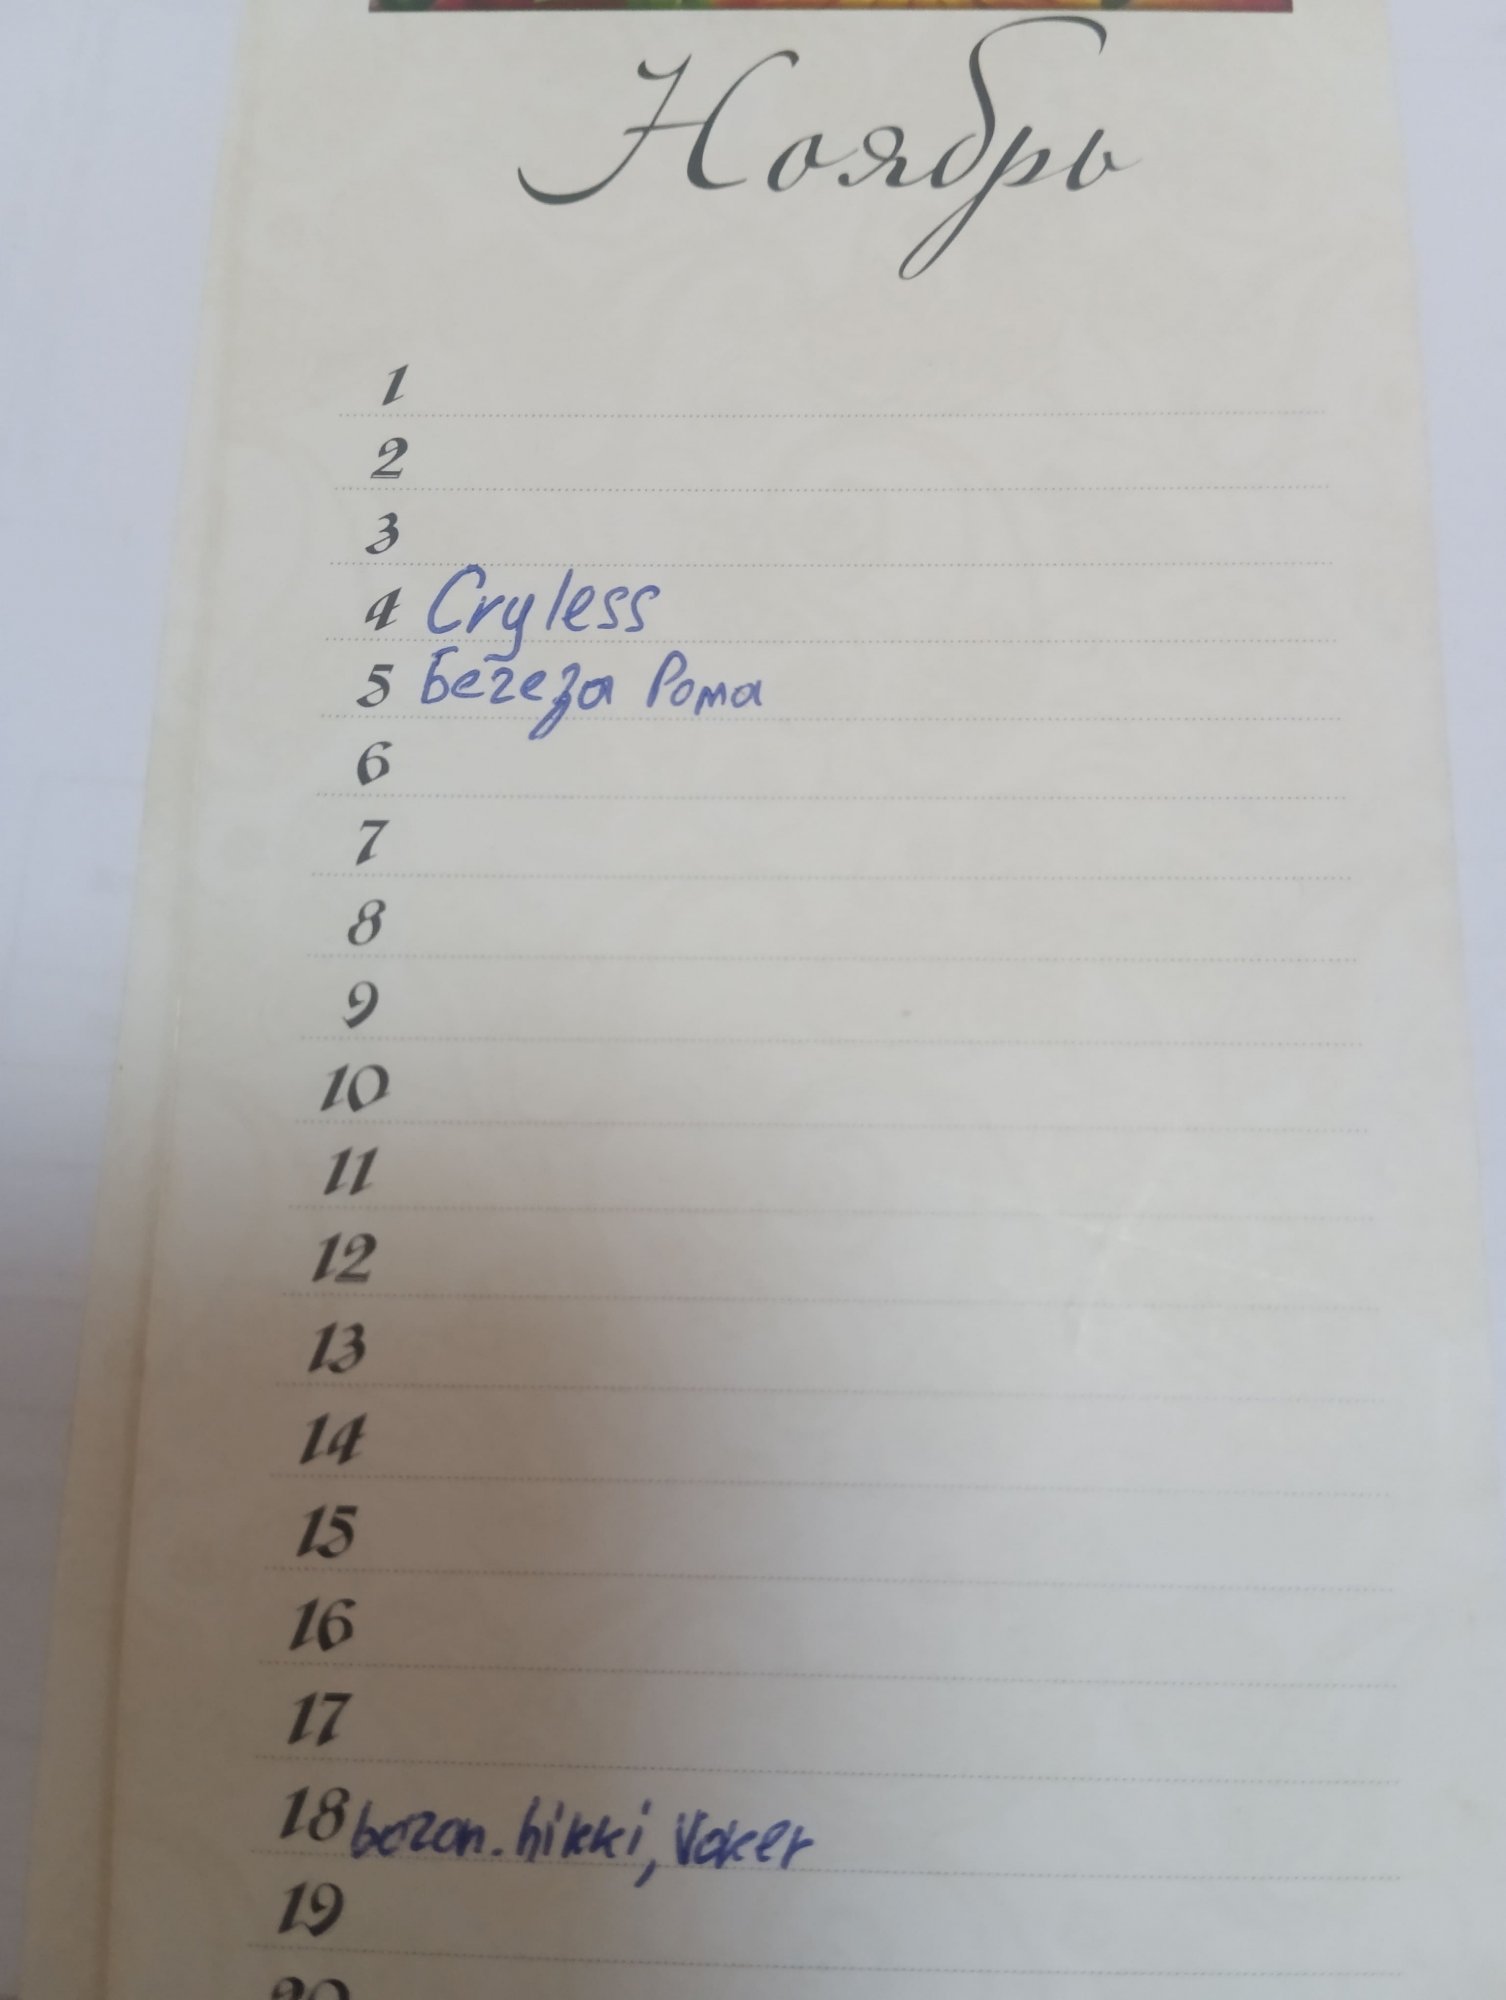 Ноябрь
1
2
3
4 Cryless
5 Береза Рома
6
7
8
9
10
11
12
13
14
15
16
17
18 bozon.hikki, Voker
19
20